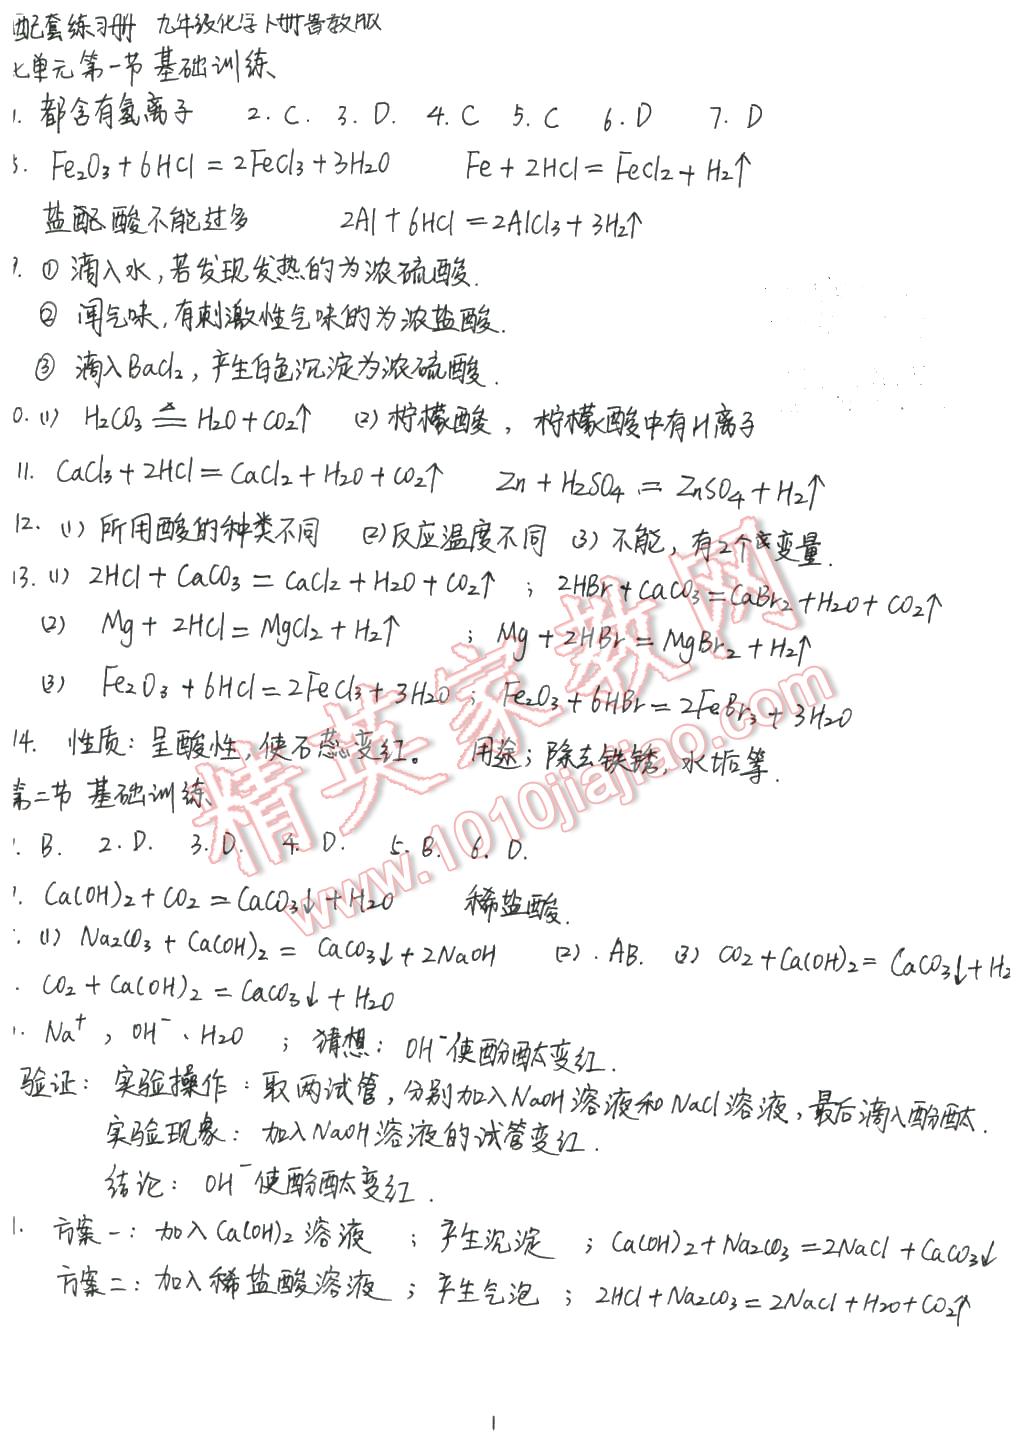 配套练习册 九年级化学下册鲁教版
七单元第一节 基础训练
1. 都含有氢离子 2. C. 3. D. 4. C 5. C 6. D 7. D
Fe₂O₃+6HCl=2FeCl₃+3H₂O Fe+2HCl=FeCl₂+H₂↑
盐酸不能过多 2Al+6HCl=2AlCl₃+3H₂↑
① 滴入水,若发现发热的为浓硫酸.
② 闻气味,有刺激性气味的为浓盐酸.
③ 滴入BaCl₂,产生白色沉淀为浓硫酸.
0.(1) H₂CO₃ ≜ H₂O+CO₂↑ (2) 柠檬酸,柠檬酸中有H离子
11. CaCl₃+2HCl=CaCl₂+H₂O+CO₂↑ Zn+H₂SO₄=ZnSO₄+H₂↑
12. (1) 所用酸的种类不同 (2)反应温度不同 (3) 不能,有2个变量.
13.(1) 2HCl+CaCO₃=CaCl₂+H₂O+CO₂↑ ; 2HBr+CaCO₃=CaBr₂+H₂O+CO₂↑
(2) Mg+2HCl=MgCl₂+H₂↑ ; Mg+2HBr=MgBr₂+H₂↑
(3) Fe₂O₃+6HCl=2FeCl₃+3H₂O ; Fe₂O₃+6HBr=2FeBr₃+3H₂O
14. 性质:呈酸性,使石蕊变红。 用途;除去铁锈,水垢等.
第二节 基础训练
B. 2.D. 3.D. 4.D. 5.B. 6.D.
Ca(OH)₂+CO₂=CaCO₃↓+H₂O 稀盐酸.
(1) Na₂CO₃+Ca(OH)₂=CaCO₃↓+2NaOH (2). AB. (3) CO₂+Ca(OH)₂=CaCO₃↓+H₂
CO₂+Ca(OH)₂=CaCO₃↓+H₂O
Na⁺,OH⁻、H₂O ;猜想:OH⁻使酚酞变红.
验证:实验操作:取两试管,分别加入NaOH溶液和NaCl溶液,最后滴入酚酞.
实验现象:加入NaOH溶液的试管变红.
结论:OH⁻使酚酞变红.
1. 方案一:加入Ca(OH)₂溶液 ;产生沉淀 ;Ca(OH)₂+Na₂CO₃=2NaCl+CaCO₃↓
方案二:加入稀盐酸溶液 ;产生气泡 ;2HCl+Na₂CO₃=2NaCl+H₂O+CO₂↑
精英家教网
www.1010jiajiao.com
1